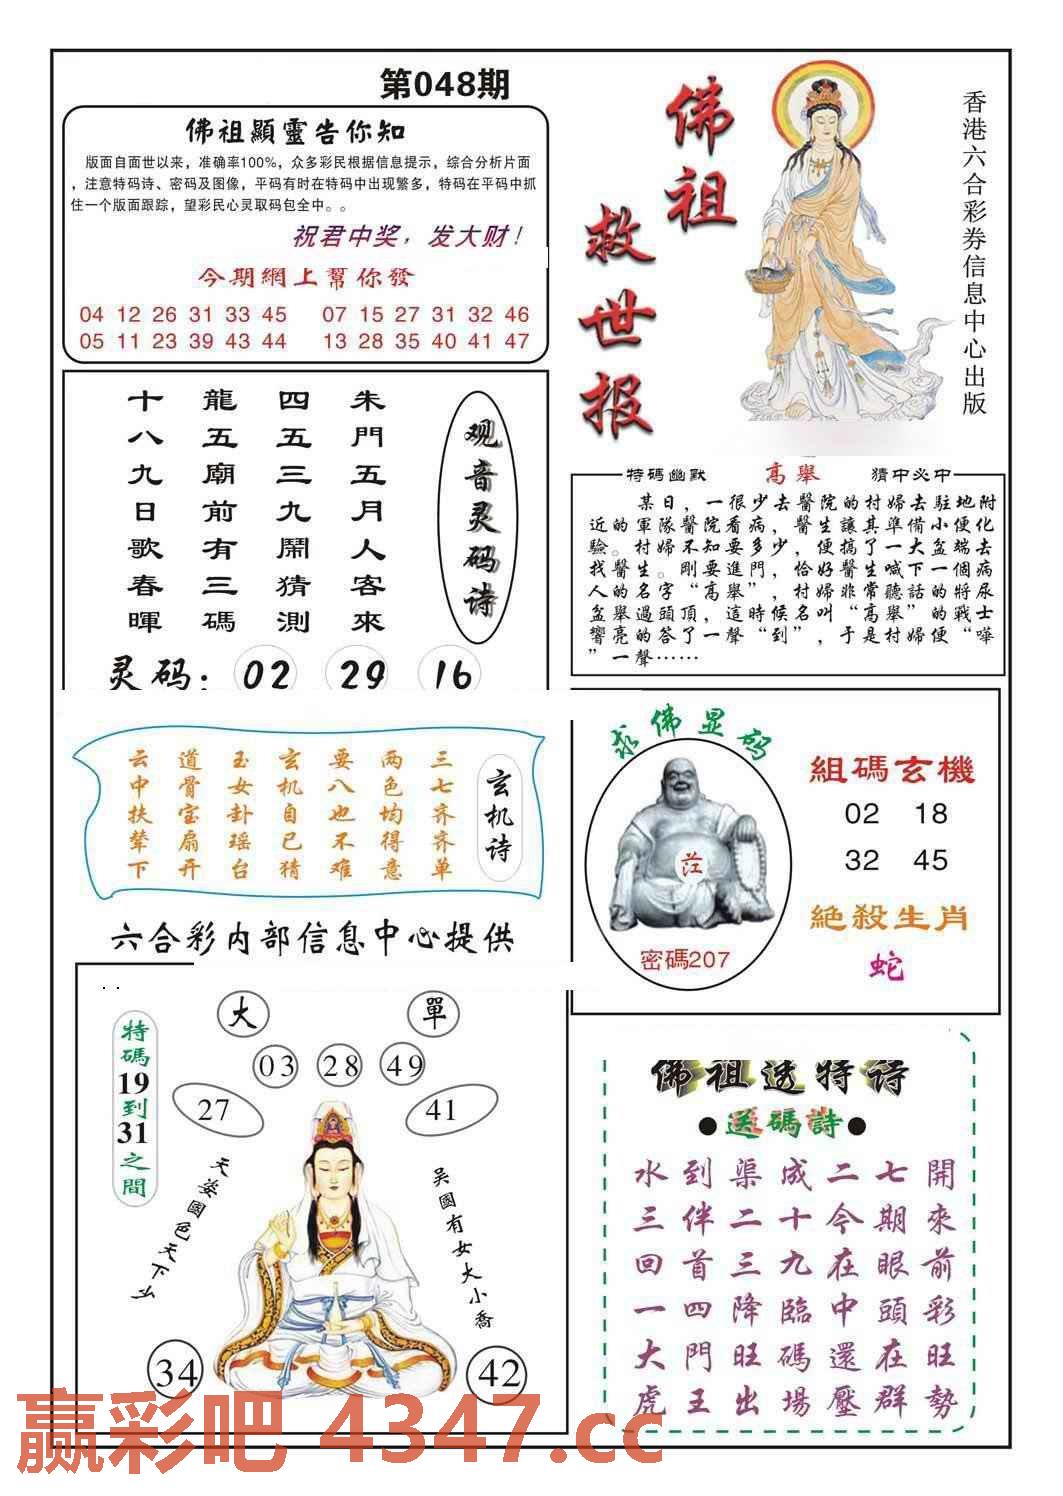 第048期
佛祖顯靈告你知
版面自面世以来，准确率100%，众多彩民根据信息提示，综合分析片面
，注意特码诗、密码及图像，平码有时在特码中出现繁多，特码在平码中抓
住一个版面跟踪，望彩民心灵取码包全中。。
祝君中奖，发大财！
今期網上幫你發
04 12 26 31 33 45 07 15 27 31 32 46
05 11 23 39 43 44 13 28 35 40 41 47
佛祖
救世报
香港六合彩券信息中心出版
观音灵码诗
朱門五月人客來
四五三九鬧猜測
龍五廟前有三碼
十八九日歌春暉
灵码：02 29 16
特碼幽默 高舉 猜中必中
某日，一很少去醫院的村婦去駐地附
近的軍隊醫院看病，醫生讓其準備小便化
驗。村婦不知要多少，便搞了一大盆端去
找醫生。剛要進門，恰好醫生喊下一個病
人的名字“高舉”，村婦非常聽話的將尿
盆舉過頭頂，這時候名叫“高舉”的戰士
響亮的答了一聲“到”，于是村婦便“嘩
”一聲……
玄机诗
三七齐齐单
两色均得意
要八也不难
玄机自已猜
玉女卦瑶台
道骨宝扇开
云中扶辇下
六合彩内部信息中心提供
求佛显码
密碼207
組碼玄機
02 18
32 45
絕殺生肖
蛇
特碼19到31之間
大 單
03 28 49
27 41
天姿國色天下少
吴國有女大小喬
34 42
佛祖透特诗
●送碼詩●
水到渠成二七開
三伴二十今期來
回首三九在眼前
一四降臨中頭彩
大門旺碼還在旺
虎王出場壓群勢
赢彩吧 4347.cc